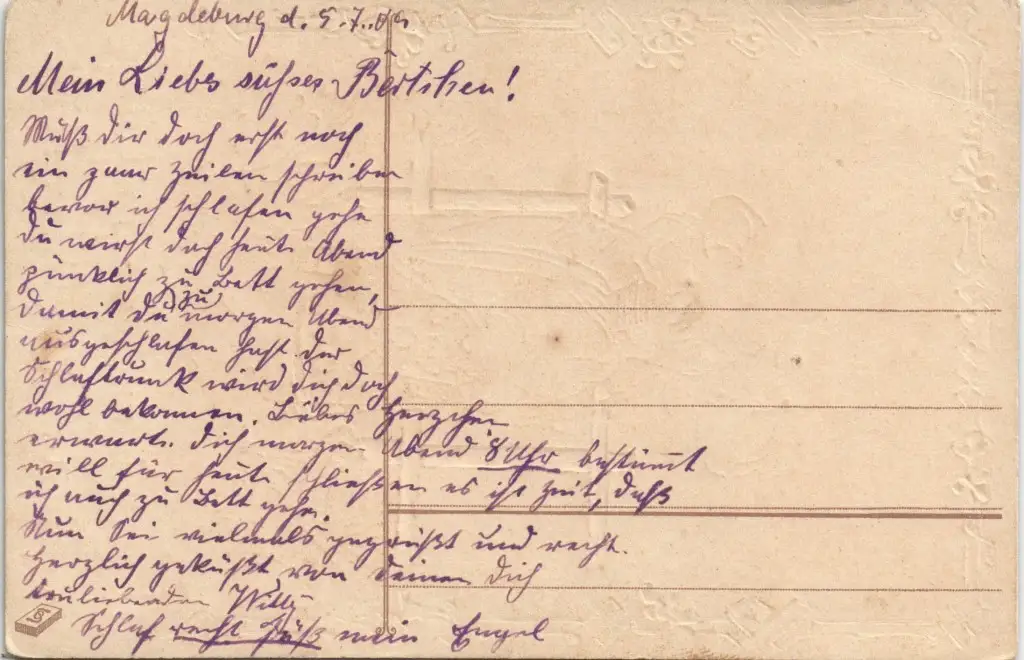 Magdeburg d. 5.7.09
Mein Liebes sühses Bertchen!
Muß dir doch erst noch
ein paar Zeilen schreiben
bevor ich schlafen gehe
du wirst doch heute Abend
pünklich zu Bett gehen,
damit du zu morgen Abend
ausgeschlafen hast. der
Schlaftrunk wird dich doch
wohl bekommen. Liebes Herzchen
erwarte dich morgen Abend 8 Uhr bestimmt
will für heute schließen es ist Zeit, daß
ich auch zu Bett gehe.
Nun Sei vielmals gegrüßt und recht
Herzlich geküßt von deinen dich
treuliebenden Willy
Schlaf recht süß mein Engel